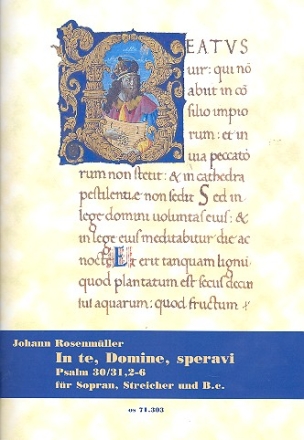 BEATVS
uir: qui nõ
abiit in cõ
silio impio
rum: et in
uia peccato
rum non stetit: & in cathedra
pestilentiæ non sedit Sed in
lege domini uoluntas eius: &
in lege eius meditabitur die ac
nocte Et erit tanquam lignũ
quod plantatum est secus decur
sus aquarum: quod fructum
Johann Rosenmüller
In te, Domine, speravi
Psalm 30/31,2-6
für Sopran, Streicher und B.c.
os 71.303